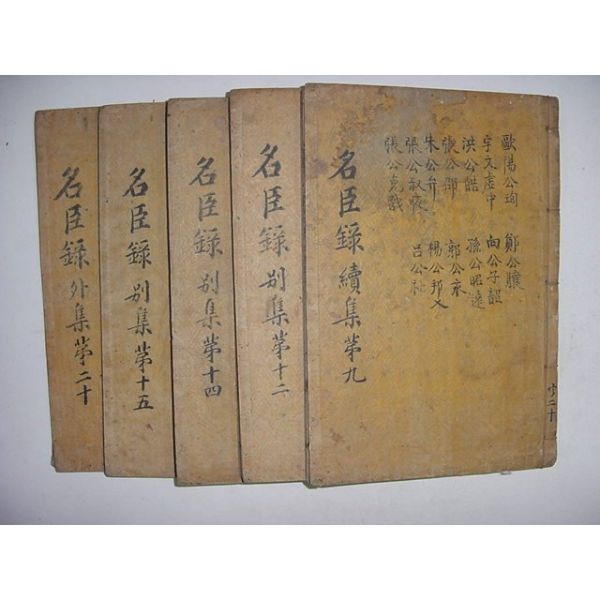 歐陽公珣 鄭公驤
宇文虛中 向公子韶
洪公皓 孫公昭遠
張公邵 郭公永
朱公弁 楊公邦乂
張公叔夜 呂公祉
張公克戩
名臣錄 續集苐九
名臣錄 別集苐十二
名臣錄 別集苐十四
名臣錄 別集苐十五
名臣錄 外集苐二十
二十